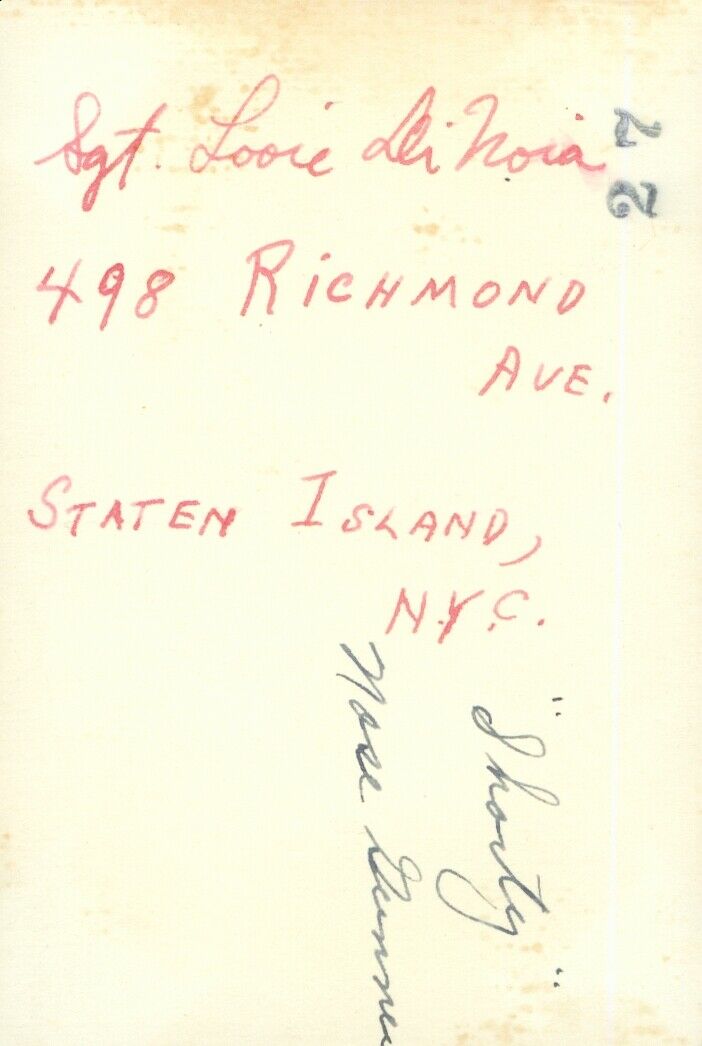 Sgt. Looie Di Noia
27
498 RICHMOND
AVE.
STATEN ISLAND,
N.Y.C.
"Shorty"
Nose Gunne